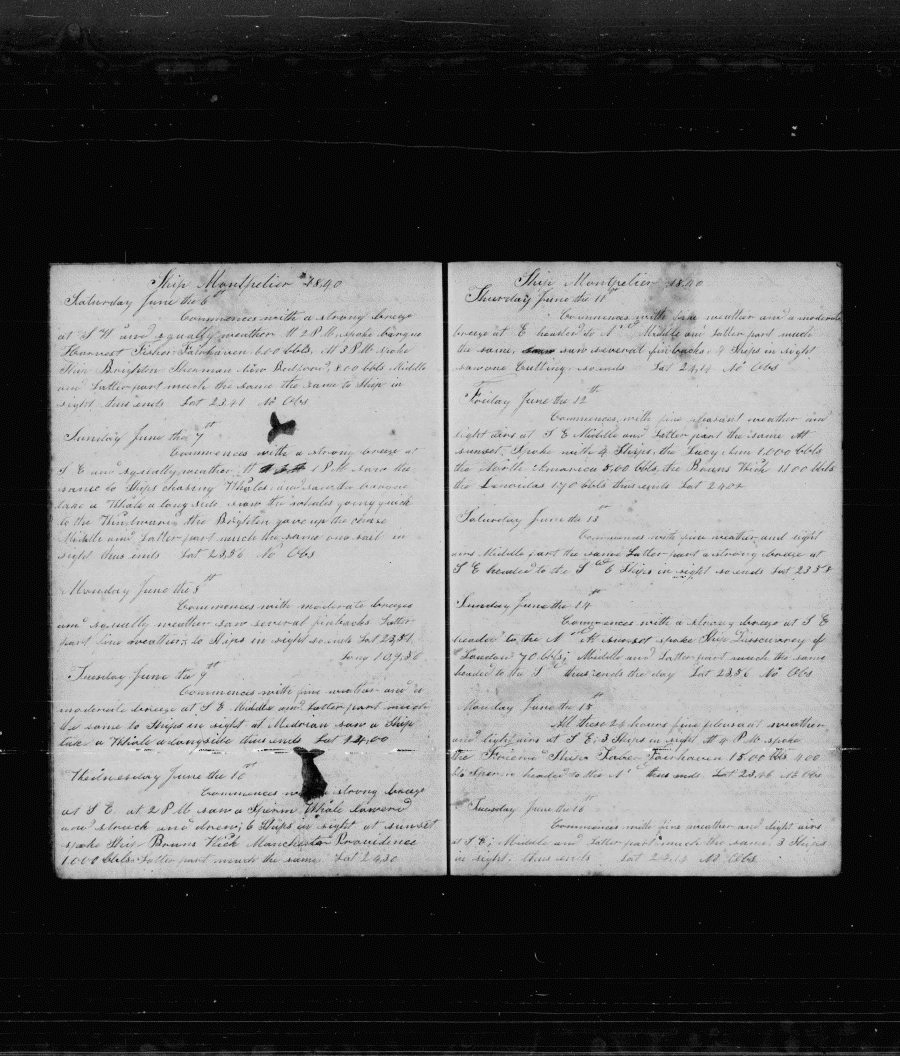 Ship Montpelier 1840
Saturday June the 6th
Commences with a strong breeze
at S W and squally weather At 2 PM spoke barque
Harvest Fisher Fairhaven 600 bbls. At 3 PM spoke
Ship Brighton Sherman New Bedford 800 bbls Middle
and Latter part much the same the same to Ship in
sight thus ends Lat 23.41 No Obs
Sunday June the 7th
Commences with a strong breeze at
S E and squally weather At 1 PM saw the
same to Ships chasing Whales and saw the barque
take a Whale a long side saw the whales going quick
to the Windward the Brighton gave up the chase
Middle and Latter part much the same one sail in
sight thus ends Lat 23.56 No Obs
Monday June the 8th
Commences with moderate breezes
and squally weather saw several finbacks Latter
part fine weather to Ships in sight so ends Lat 23.51
Long 109.36
Tuesday June the 9th
Commences with fine weather and a
moderate breeze at S E Middle and Latter part much
the same to Ships in sight at Medrian saw a Ship
take a Whale alongside thus ends Lat 24,00
Wednesday June the 10th
Commences with a strong breeze
at S E. at 2 PM saw a Sperm Whale lowered
and struck and drew; 6 Ships in sight at sunset
spoke Ship Bouns Wick Manchester Providence
1,000 bbls Latter part much the same Lat 24,30
Ship Montpelier 1840
Thursday June the 11th
Commences with fine weather and a moderate
breeze at E headed to N Middle and Latter part much
the same, saw several finbacks 4 Ships in sight
saw one Cutting so ends Lat 24,14 No Obs
Friday June the 12th
Commences with fine pleasant weather and
light airs at S E Middle and Latter part the same At
sunset spoke with 4 Ships the Lucy Ann 1,000 bbls
the North America 800 bbls, the Bouns Wick 1100 bbls
the Leonidas 170 bbls thus ends Lat 24.02
Saturday June the 13th
Commences with fine weather and light
airs Middle part the same Latter part a strong breeze at
S E headed to the S 6 Ships in sight so ends Lat 23.58
Sunday June the 14th
Commences with a strong breeze at S E
headed to the N At sunset spoke Ship Disscovrey of
London 70 bbls; Middle and Latter part much the same
headed to the S thus ends the day Lat 23.56 No Obs
Monday June the 15th
All these 24 hours fine pleasant weather
and light airs at S E; 3 Ships in sight At 4 PM spoke
the Fairhaven 15.00 bbls 400
bls Sperm headed to the N thus ends Lat 23,46 No Obs
Tuesday June the 16th
Commences with fine weather and light airs
at S E; Middle and Latter part much the same 3 Ships
in sight. thus ends Lat 23.13 No Obs